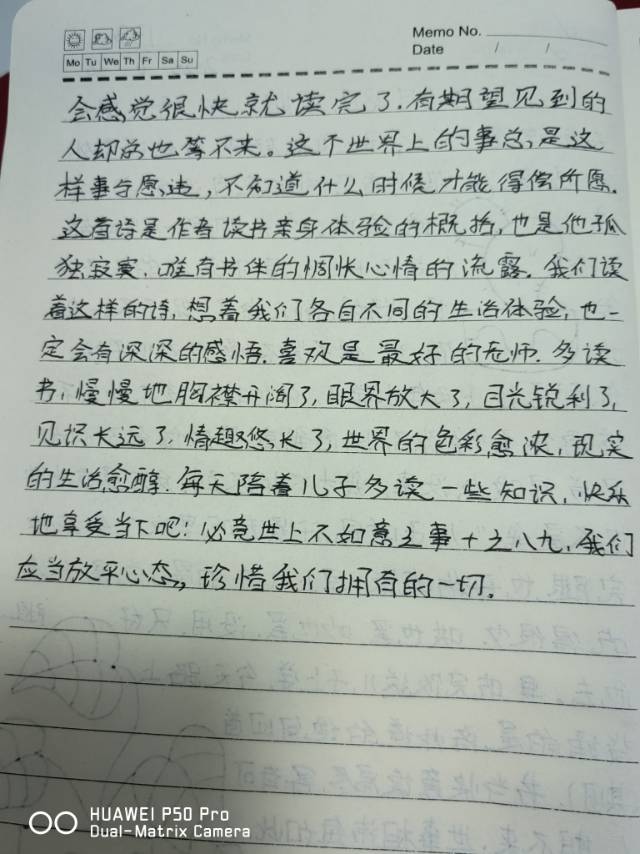 Memo No.
Date / /
Mo Tu We Th Fr Sa Su
会感觉很快就读完了.有期望见到的
人却总也等不来。这个世界上的事总是这
样事与愿违,不知道什么时候才能得偿所愿.
这首诗是作者读书亲身体验的概括,也是他孤
独寂寞.唯有书伴的惆怅心情的流露.我们读
着这样的诗,想着我们各自不同的生活体验,也一
定会有深深的感悟.喜欢是最好的老师.多读
书,慢慢地胸襟开阔了,眼界放大了,目光锐利了,
见识长远了,情趣悠长了,世界的色彩愈浓,现实
的生活愈醇.每天陪着儿子多读一些知识,快乐
地享受当下吧!必竟世上不如意之事十之八九,我们
应当放平心态,珍惜我们拥有的一切.
HUAWEI P50 Pro
Dual-Matrix Camera